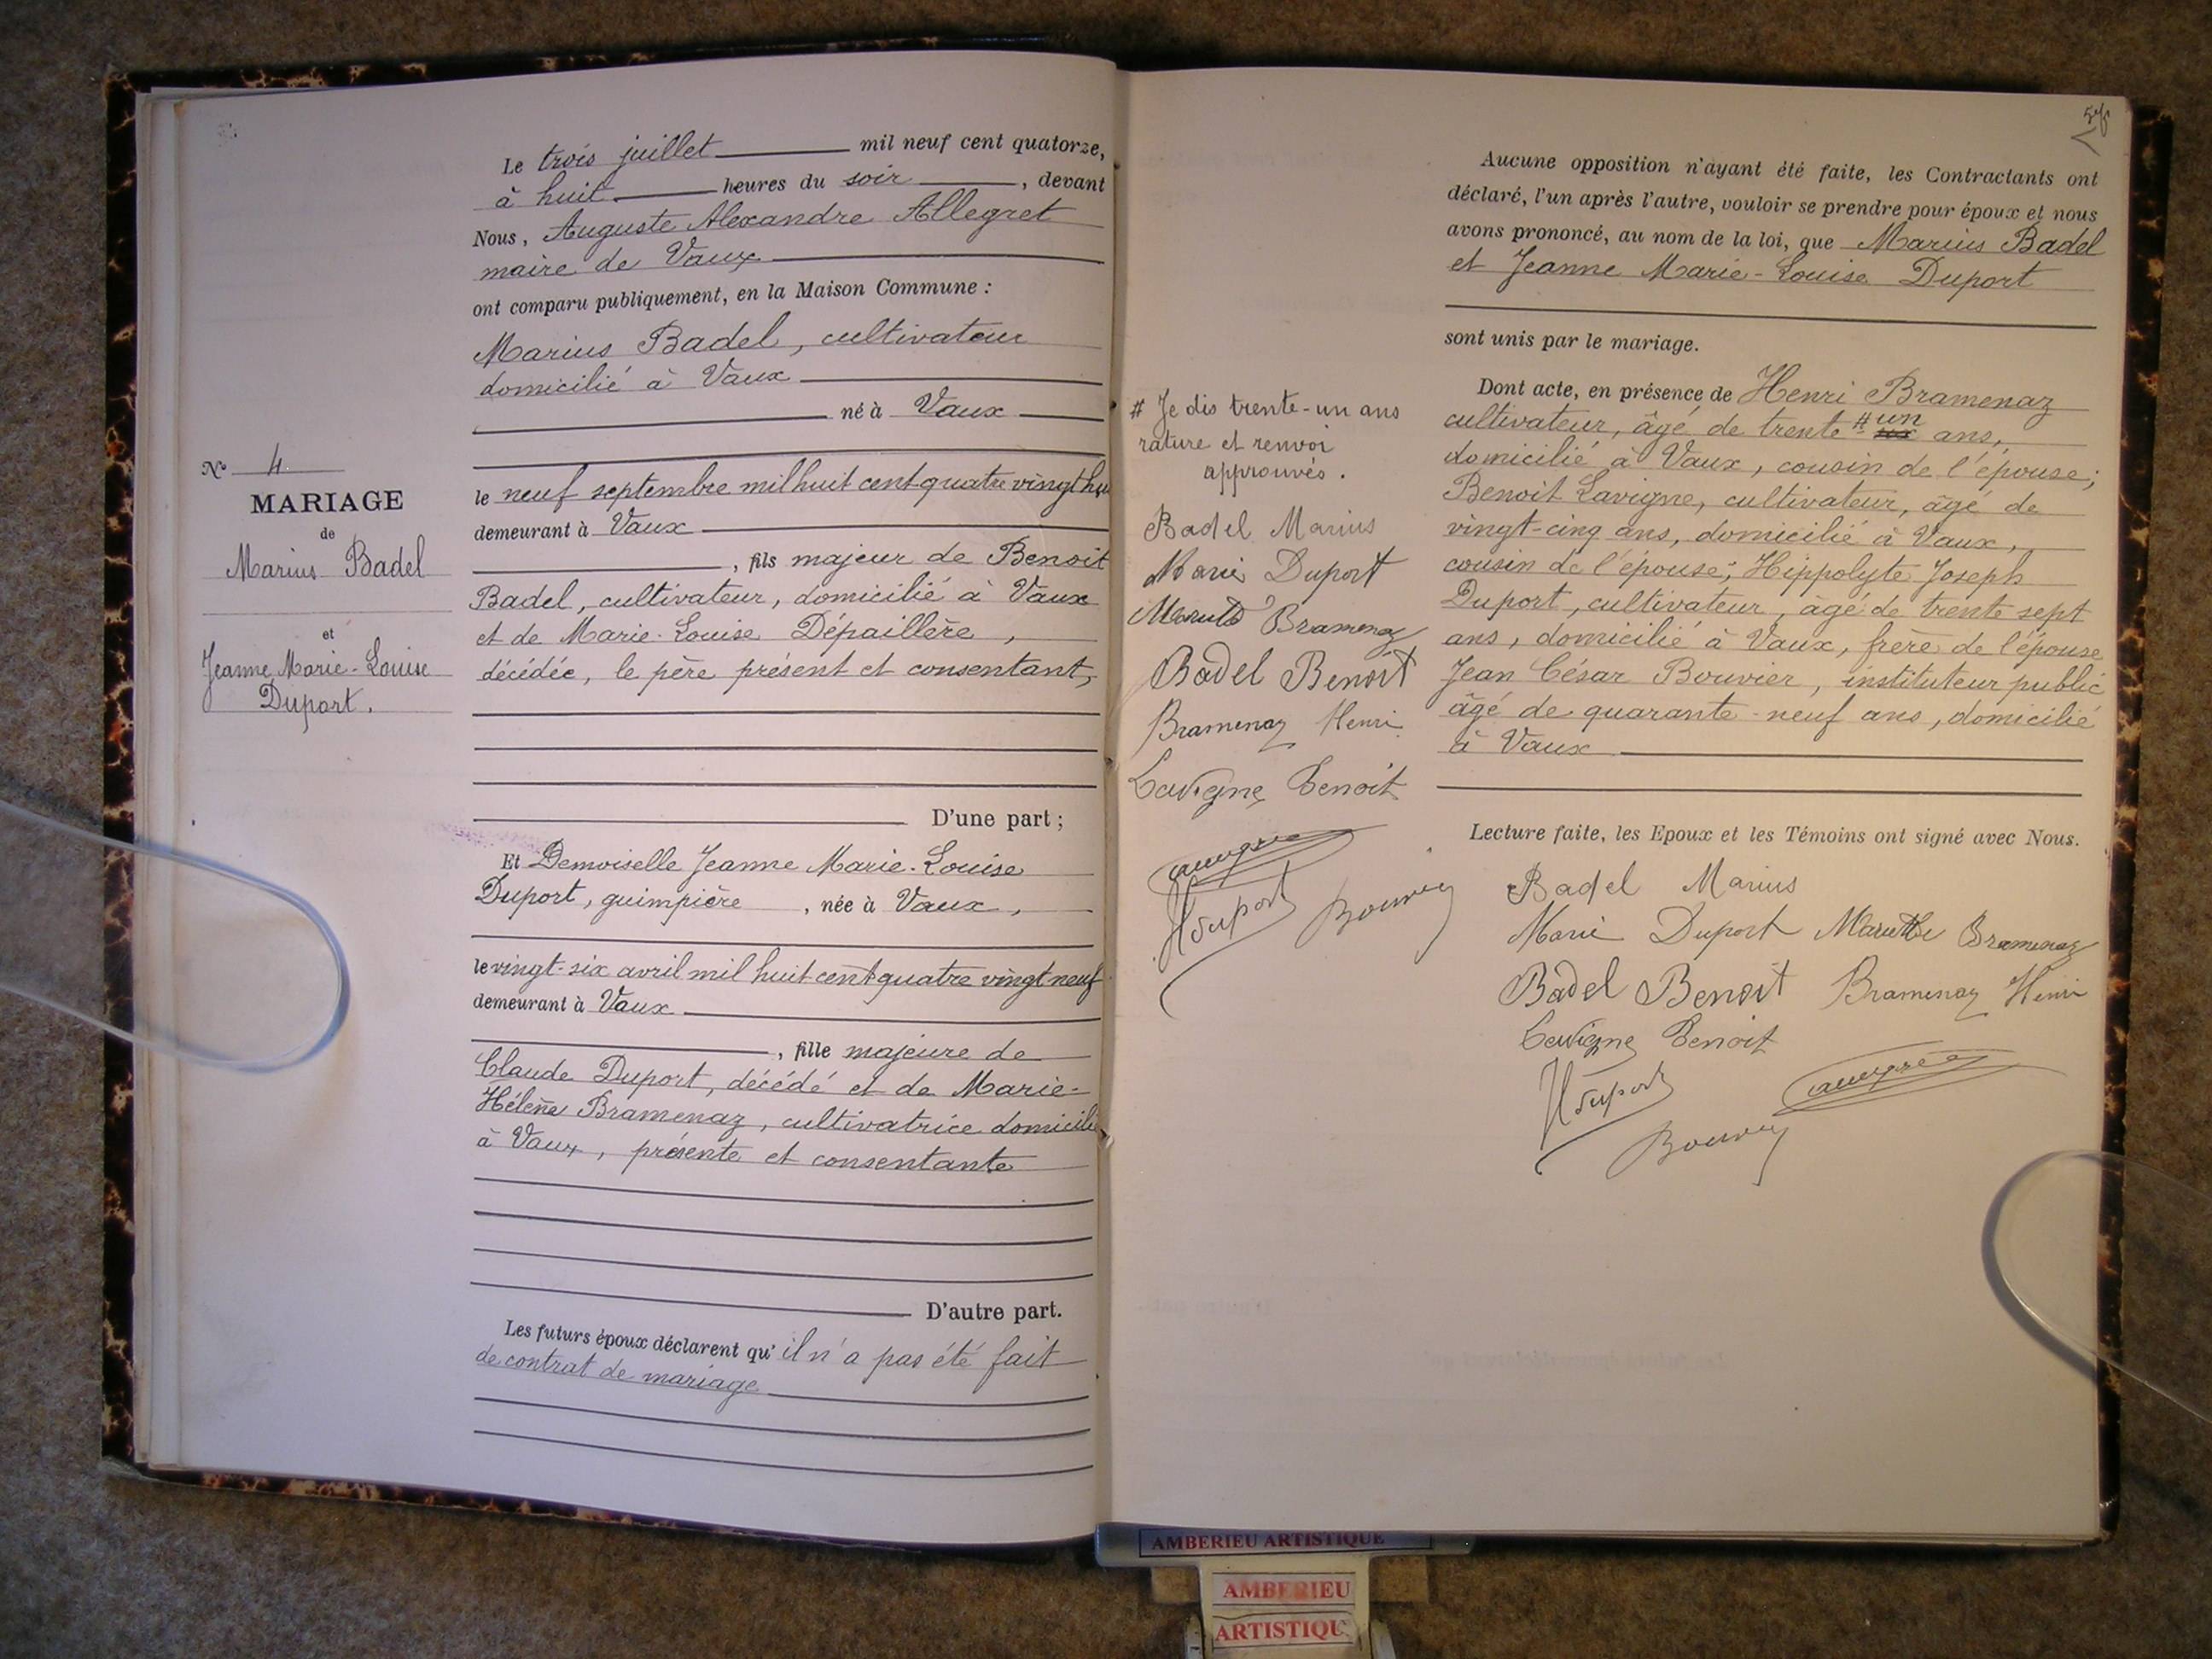 N° 4
MARIAGE
de
Marius Badel
et
Jeanne Marie-Louise
Duport.
Le trois juillet mil neuf cent quatorze,
à huit heures du soir, devant
Nous, Auguste Alexandre Allegret
maire de Vaux
ont comparu publiquement, en la Maison Commune :
Marius Badel, cultivateur
domicilié à Vaux
né à Vaux
le neuf septembre mil huit cent quatre vingt
demeurant à Vaux
, fils majeur de Benoit
Badel, cultivateur, domicilié à Vaux
et de Marie-Louise Dépaillère,
décédée, le père présent et consentant,
D'une part ;
Et Demoiselle Jeanne Marie-Louise
Duport, guimpière, née à Vaux,
le vingt-six avril mil huit cent quatre vingt neuf
demeurant à Vaux
, fille majeure de
Claude Duport, décédé et de Marie-
Hélène Bramenaz, cultivatrice domicilié
à Vaux, présente et consentante
D'autre part.
Les futurs époux déclarent qu'il n'a pas été fait
de contrat de mariage
# Je dis trente-un ans
rature et renvoi
approuvés.
Badel Marius
Marie Duport
Bramenaz
Badel Benoit
Bramenaz Henri
Lavigne Benoit
HDuport Bouvier
Aucune opposition n'ayant été faite, les Contractants ont
déclaré, l'un après l'autre, vouloir se prendre pour époux et nous
avons prononcé, au nom de la loi, que Marius Badel
et Jeanne Marie-Louise Duport
sont unis par le mariage.
Dont acte, en présence de Henri Bramenaz
cultivateur, âgé de trente # un ans,
domicilié à Vaux, cousin de l'épouse;
Benoit Lavigne, cultivateur, âgé de
vingt-cinq ans, domicilié à Vaux,
cousin de l'épouse; Hippolyte Joseph
Duport, cultivateur, âgé de trente sept
ans, domicilié à Vaux, frère de l'épouse
Jean César Bouvier, instituteur public
âgé de quarante-neuf ans, domicilié
à Vaux
Lecture faite, les Epoux et les Témoins ont signé avec Nous.
Badel Marius
Marie Duport Bramenaz
Badel Benoit Bramenaz Henri
Lavigne Benoit
HDuport
Bouvier
AMBERIEU ARTISTIQUE
AMBERIEU
ARTISTIQU